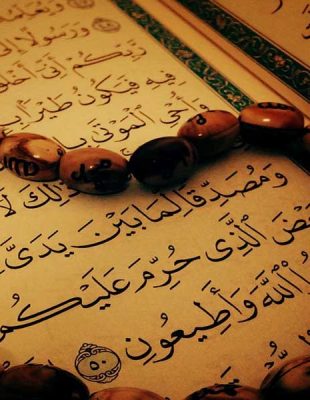 وَيُعَلِّمُهُ
وَرَسُولًا
رَّبِّكُمْ أَنِّىٓ أَخْلُقُ
فِيهِ فَيَكُونُ طَيْرًۢا
وَأُحْىِ ٱلْمَوْتَىٰ
ذَٰلِكَ
وَمُصَدِّقًا لِّمَا بَيْنَ يَدَىَّ
بَعْضَ ٱلَّذِى حُرِّمَ عَلَيْكُمْ
ٱللَّهَ وَأَطِيعُونِ ٥٠